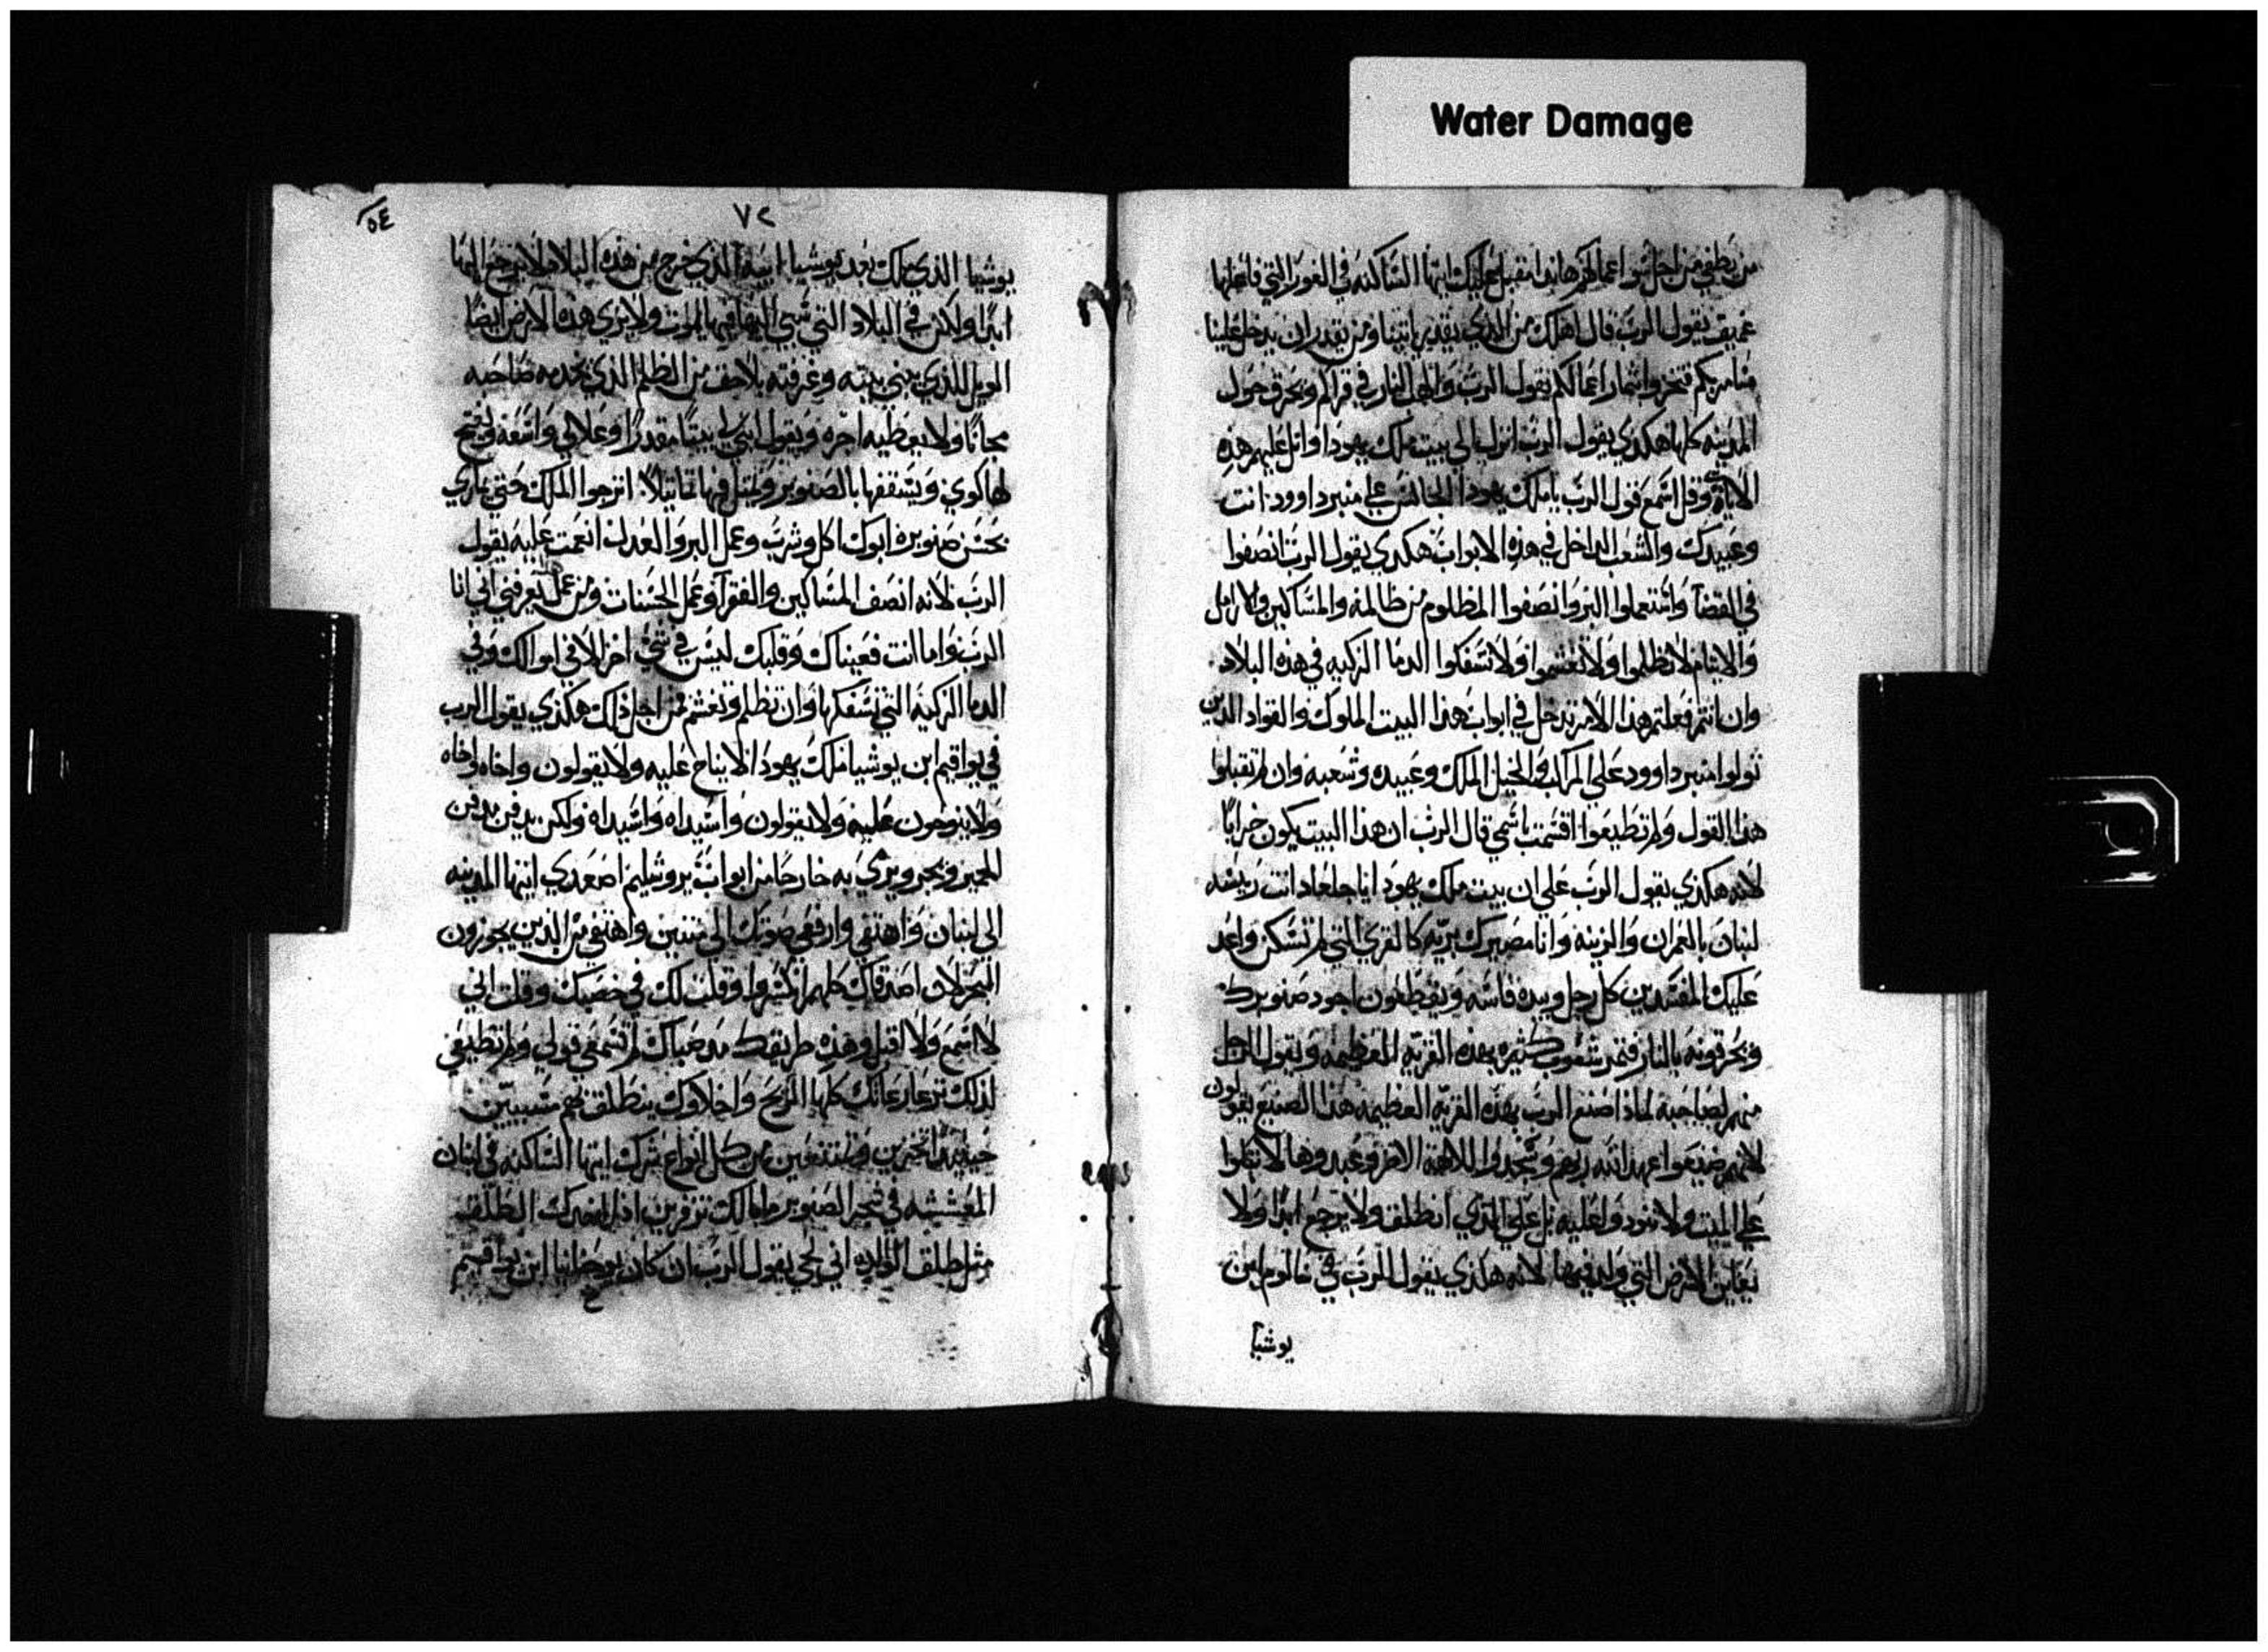 Water Damage
من يطفي من اجل سو اعمالكم هاندا مقبل عليك ايتها الساكنه في الغور التي قاعها
عميق يقول الرب قال اهلك من الذي يقدر ياتينا ومن يقدر ان يدخل علينا
اثمار اعمالكم يقول الرب النار في قراكم وتحرق حول
المدينه كلها هكذي يقول الرب انزل الي بيت ملك يهودا واتل عليهم هذه
الاياة وقل اسمع قول الرب يا ملك يهودا الجالس علي منبر داوود انت
وعبيدك والشعب الداخل في هذه الابواب هكدي يقول الرب انصفوا
في القضآ واستعملوا البر وانصفوا المظلوم من ظالمه والمساكين والارامل
والايتام لا تظلموا ولا تغشموا ولا تسفكوا الدما الزكيه في هذه البلاد
وان انتم فعلتم هذا الامر تدخل في ابواب هذا البيت الملوك والقواد الذين
تولوا منبر داوود علي المراكب والخيل الملك وعبيده وشعبه وان لم تقبلوا
هذا القول ولم تطيعوا اقسمت باسمي قال الرب ان هذا البيت يكون خرابًا
لانه هكذي يقول الرب علي ان بيت ملك يهودا يا جلعاد انت رييسه
لبنان بالعمران والزينه وانا مصيرك بريه كالقري التي لم تسكن واعد
عليك المفسدين كل رجل وبيده فاسه ويقطعون اجود صنوبرك
ويحرقونه بالنار فتمر شعوب كثيره بهذه القريه العظيمه ويقول الرجل
منهم لصاحبه لماذا صنع الرب بهذه القريه العظيمه هذا الصنيع يقولون
لانهم ضيعوا عهد الله ربهم وسجدوا للالهة الاخر وعبدوها لا تبكوا
علي الميت ولا تنددوا عليه بل علي الذي انطلق ولا يرجع ابدًا ولا
يعاين الارض التي ولد فيها لانه هكذي يقول الرب في شالوم ابن
يوشيا
٥٤
٧٢
يوشيا الذي ملك بعد يوشيا ابيه الذي خرج من هذه البلاد لا يرجع اليها
ابدًا ولاكن في البلاد التي سبي اليها فيها يموت ولا يري هذه الارض ايضًا
الويل للذي يبني بيته وغرفته بلا حق من الظلم الذي يخدمه صاحبه
مجانًا ولا يعطيه اجره ويقول ابني لي بيتًا مقدرًا وعلالي واسعه ويفتح
لها كوي ويسقفها بالصنوبر ويمثل فيها تماثيلاً اترجوا الملك حتي تماري
بحسن صنوبره ابوك اكل وشرب وعمل البر والعدل انعمت عليه يقول
الرب لانه انصف المساكين والفقرآ وعمل الحسنات ومن عمل يعرفني اني انا
الرب واما انت فعيناك وقلبك ليس في شي اخر الا في اموالك وفي
الدما الزكية التي تسفكها وان تظلم وتغشم فمن اجل ذلك هكذي يقول الرب
في يواقيم ابن يوشيا ملك يهودا لا يناح عليه ولا يقولون واخاه واخاه
ولا ينوحون عليه ولا يقولون واسيداه واسيداه ولكن يدفن مدفن
الحمير ويجر ويرمي به خارجًا من ابواب يروشليم اصعدي ايتها المدينه
الي لبنان واهتفي وارفعي صوتك الي متنين واهتفي من الذين يجوزون
البحر لان اصدقاك كلهم انكسروا وقلت لك في خصبك وقلت اني
لا اسمع ولا اقبل وهذه طريقتك مند صباك لم تسمعي قولي ولم تطيعني
لذلك ترعا رعاتك كلها الريح واخلاوك ينطلق بهم مسبيين
حينيذ من كل انواع شرك ايتها الساكنه في لبنان
المعششه في شجر الصنوبر ما بالك تزفرين اذا اخدك الطلق
مثل طلق الوالده اني لحي يقول الرب ان كان يوحانيا ابن يواقيم